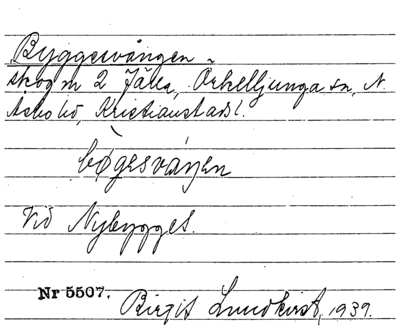 Byggesvången
skog m 2 Jälla, Örkelljunga sn, N.
Åsbo hd, Kristianstads l.
bøgesváŋen
Vid Nybygget.
Nr 5507. Birgit Lundkvist, 1939.